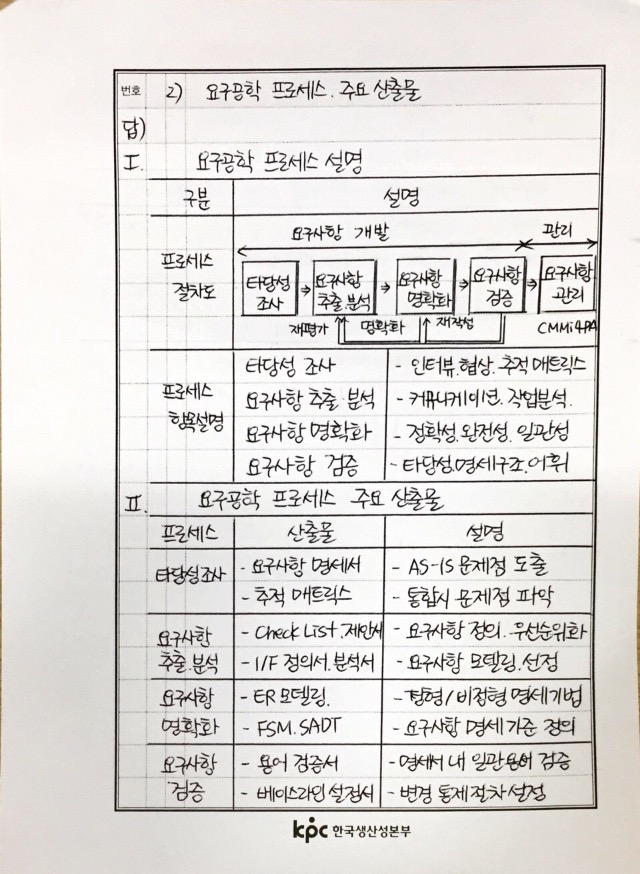 번호 2) 요구공학 프로세스. 주요 산출물
답)
I. 요구공학 프로세스 설명
구분 설명
프로세스 절차도
요구사항 개발 관리
타당성 조사 ⇒ 요구사항 추출.분석 ⇒ 요구사항 명확화 ⇒ 요구사항 검증 ⇒ 요구사항 관리
재평가 명확화 재작성 CMMi 4PA
프로세스 항목설명
타당성 조사 - 인터뷰.협상. 추적 매트릭스
요구사항 추출.분석 - 커뮤니케이션. 작업분석.
요구사항 명확화 - 정확성.완전성. 일관성
요구사항 검증 - 타당성.명세구조.어휘
II. 요구공학 프로세스 주요 산출물
프로세스 산출물 설명
타당성조사 - 요구사항 명세서 - AS-IS 문제점 도출
- 추적 매트릭스 - 통합시 문제점 파악
요구사항 - Check List.제안서 - 요구사항 정의. 우선순위화
추출.분석 - I/F 정의서.분석서 - 요구사항 모델링.선정
요구사항 - ER 모델링. - 정형/비정형 명세기법
명확화 - FSM.SADT - 요구사항 명세 기준 정의
요구사항 - 용어 검증서 - 명세서 내 일관용어 검증
검증 - 베이스라인 설정서 - 변경 통제 절차 설정
kpc 한국생산성본부